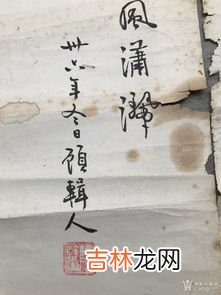 風瀟灑
卅六年冬日顧輯人
吉林龙网